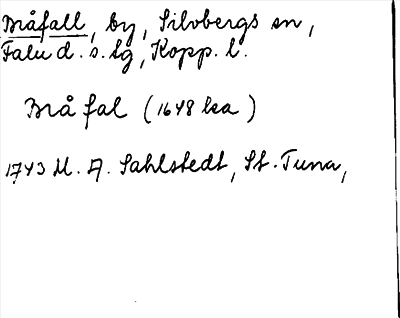 Bråfall, by, Silvbergs sn,
Falu d. s. lg, Kopp. l.
Brå fal (1648 ksa)
1743 M. A. Sahlstedt, St. Tuna,